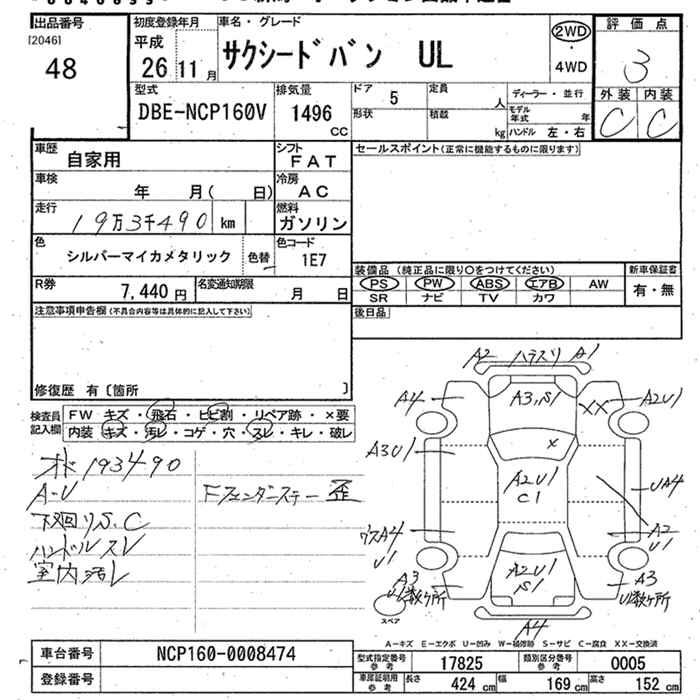 出品番号
[2046]
48
初度登録年月
平成
26 11月
車名・グレード
サクシードバン UL
2WD
・
4WD
評価点
3
外装 内装
C C
型式
DBE-NCP160V
排気量
1496
CC
ドア 5
定員 人
形状
積載 kg
ディーラー・並行
モデル年式 年
ハンドル 左・右
車歴
自家用
シフト
FAT
セールスポイント(正常に機能するものに限ります)
車検
年 月( 日)
冷房
AC
走行
19万3千490 km
燃料
ガソリン
色
シルバーマイカメタリック
色替
色コード
1E7
装備品 (純正品に限り○をつけてください)
PS PW ABS エアB AW
SR ナビ TV カワ
新車保証書
有・無
R券
7,440 円
名変通知期限
月 日
後日品
注意事項申告欄(不具合内容等は具体的に記入して下さい)
修復歴 有〔箇所 〕
検査員記入欄
FW キズ・飛石・ヒビ割・リペア跡・×要
内装 キズ・汚レ・コゲ・穴・スレ・キレ・破レ
193490
A-U
Fフェンダーステー 歪
下廻りS.C
ハンドルスレ
室内汚レ
A2 ハラズリ A1
A4
A3,S1
XX
A2U1
A3U1
×
A2U1
C1
UA4
ウスA4
U1
A2
U1
A3
U1数ヶ所
A2U1
S1
A3
U1数ヶ所
スペア
A4
A=キズ E=エクボ U=凹み W=補修跡 S=サビ C=腐食 XX=交換済
車台番号
NCP160-0008474
登録番号
型式指定番号
参考
17825
類別区分番号
参考
0005
車庫証明用
参考
長さ 424 cm
幅 169 cm
高さ 152 cm